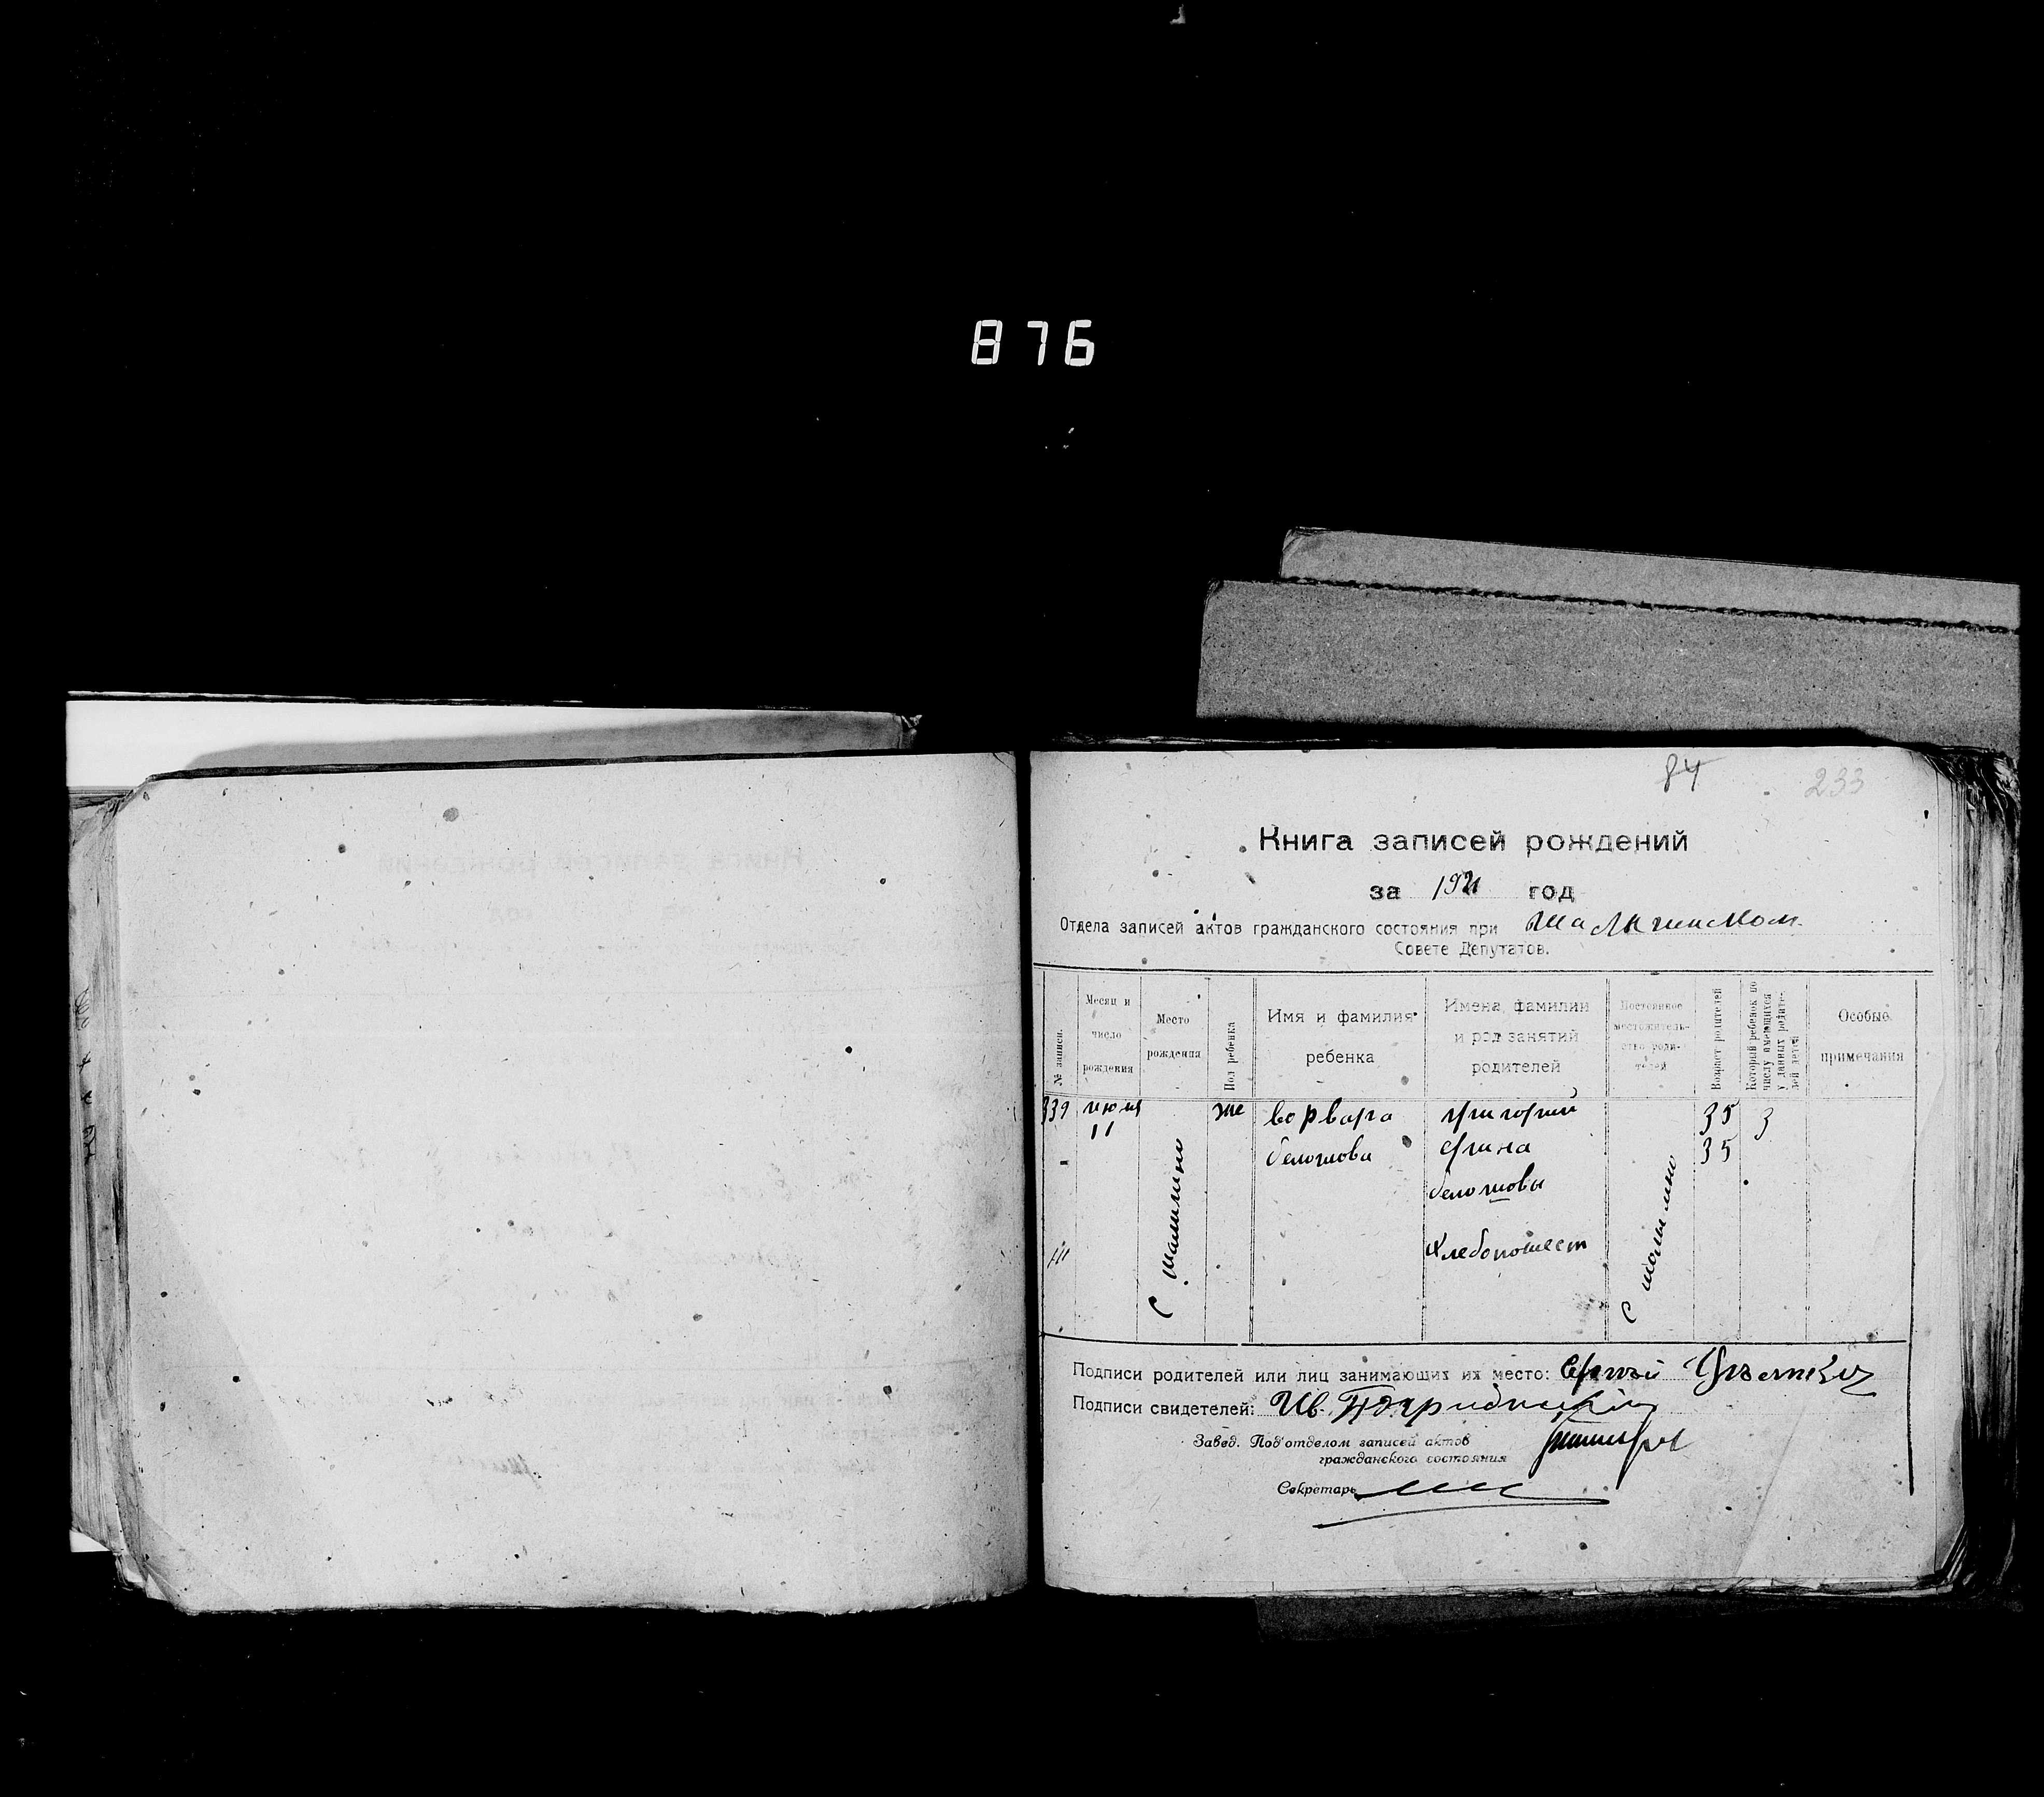 876
84
233
Книга записей рождений
за 1921 год
Отдела записей актов гражданского состояния при
Совете Депутатов.
№ записи.
Месяц и
число
рождения
Место
рождения
Пол ребенка
Имя и фамилия
ребенка
Имена фамилии
и род занятий
родителей
Постоянное
местожитель-
ство роди-
телей
Возраст родителей
Который ребенок по
числу имеющихся
у данных родите-
лей детей
Особые
примечания
339 июля же ворвара григорий 35 3
11
ерина 35
хлебопошест
Подписи родителей или лиц занимающих их место:
Подписи свидетелей: Ив.
Завед. Под'отделом записей актов
гражданского состояния
Секретарь